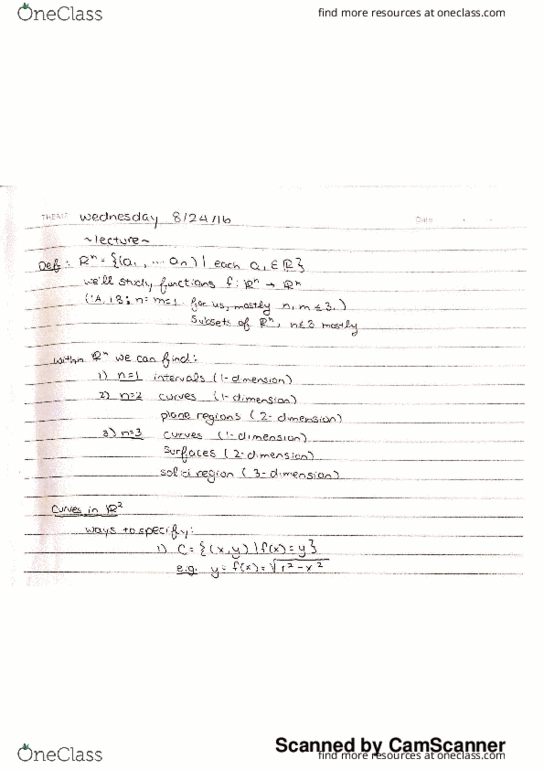 OneClass
find more resources at oneclass.com
THESIS wednesday 8/24/16 Date
~lecture~
Def: Rⁿ = {(a₁, ... aₙ) | each aᵢ ∈ ℝ}
we'll study functions f: ℝⁿ → ℝᵐ
n=m=1 for us, mostly n, m ≤ 3.)
Subsets of ℝⁿ, n≤3 mostly
within ℝⁿ we can find:
1) n=1 intervals (1-dimension)
2) n=2 curves (1-dimension)
plane regions (2-dimension)
3) n=3 curves (1-dimension)
Surfaces (2-dimension)
solid region (3-dimension)
Curves in ℝ²
ways to specify:
1) C = {(x,y) | f(x)=y}
e.g. y = f(x) = √r²-x²
Scanned by CamScanner
OneClass
find more resources at oneclass.com